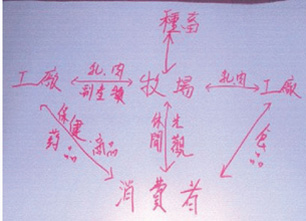 種畜
工廠 乳.肉 牧場 乳肉 工廠
副產領
保健 休閒 生觀 食品
药品 商品
消費者